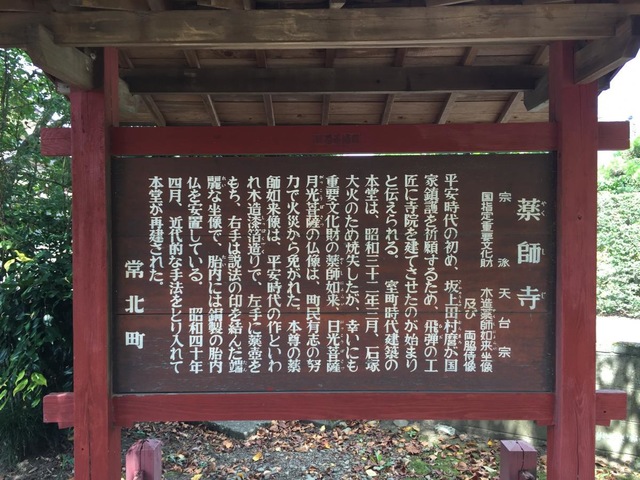 薬師寺
やくしじ
宗派 天台宗
国指定重要文化財 木造薬師如来坐像
及び 両脇侍像
平安時代の初め、坂上田村麿が国
家鎮護を祈願するため、飛弾の工
匠に寺院を建てさせたのが始まり
と伝えられる。室町時代建築の
本堂は、昭和三十二年三月、石塚
大火のため焼失したが、幸いにも
重要文化財の薬師如来、日光菩薩
月光菩薩の仏像は、町民有志の努
力で火災から免がれた。本尊の薬
師如来像は、平安時代の作といわ
れ木造漆箔造りで、左手に薬壺を
もち、右手は説法の印を結んだ端
麗な坐像で、胎内には銅製の胎内
仏を安置している。昭和四十年
四月、近代的な手法をとり入れて
本堂が再建された。
常北町